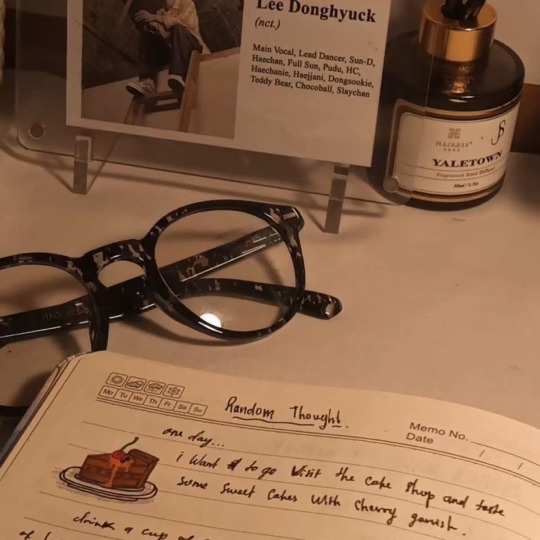 Lee Donghyuck
(nct.)
Main Vocal, Lead Dancer, Sun-D,
Haechan, Full Sun, Pudu, HC,
Haechanie, Haejjani, Dongsookie,
Teddy Bear, Chocoball, Slaychan
YALETOWN
Mo Tu We Th Fr Sa Su
Random Thought.
Memo No.
Date / /
one day...
i want to go visit the cake shop and taste
some sweet cakes with cherry garnish.
drink a cup of